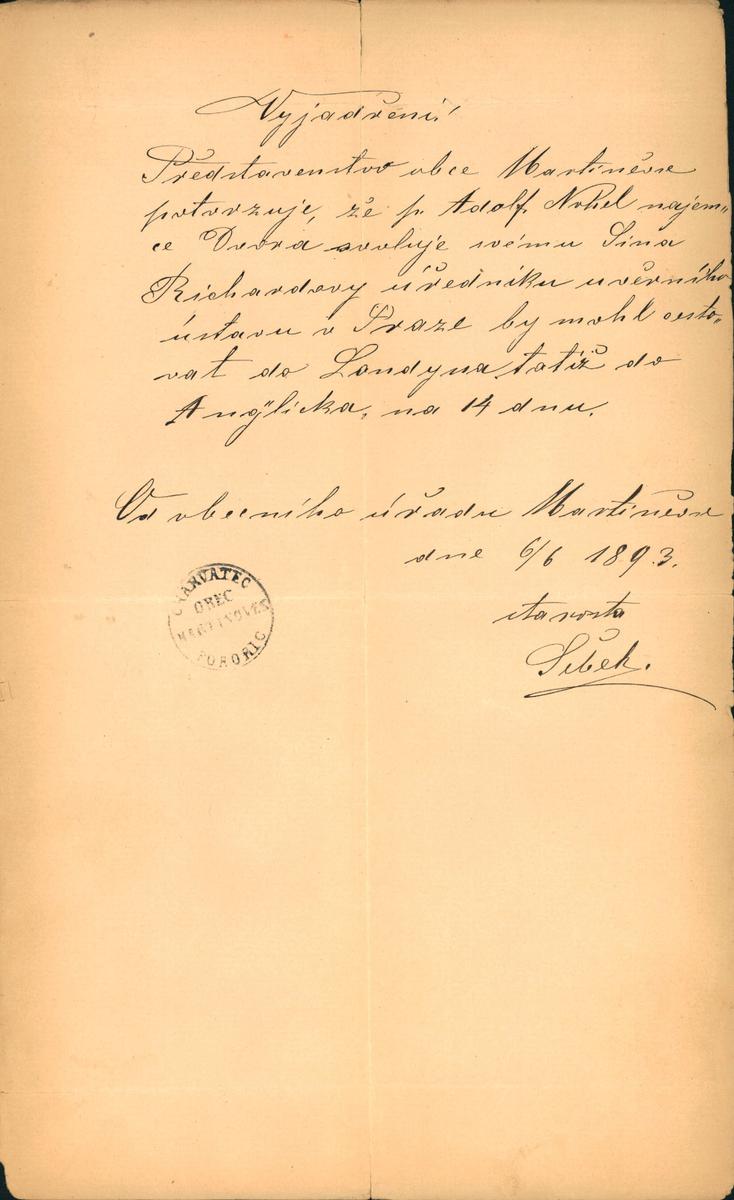 Vyjádření!
Představenstvo obce Martiněvse
potvrzuje, že p. Adolf Nohel najem„
ce Dvora svoluje svému Sinu
Richardovy úředníku uvěrního
ústavu v Praze by mohl cesto„
vat do Londyna tatíž do
Anglicka, na 14 dnu.
Od obecního úřadu Martiněvse
dne 6/6 1893.
starosta
Šibek.
CHARVATEC
OBEC
MARTINOVES
POHORIC